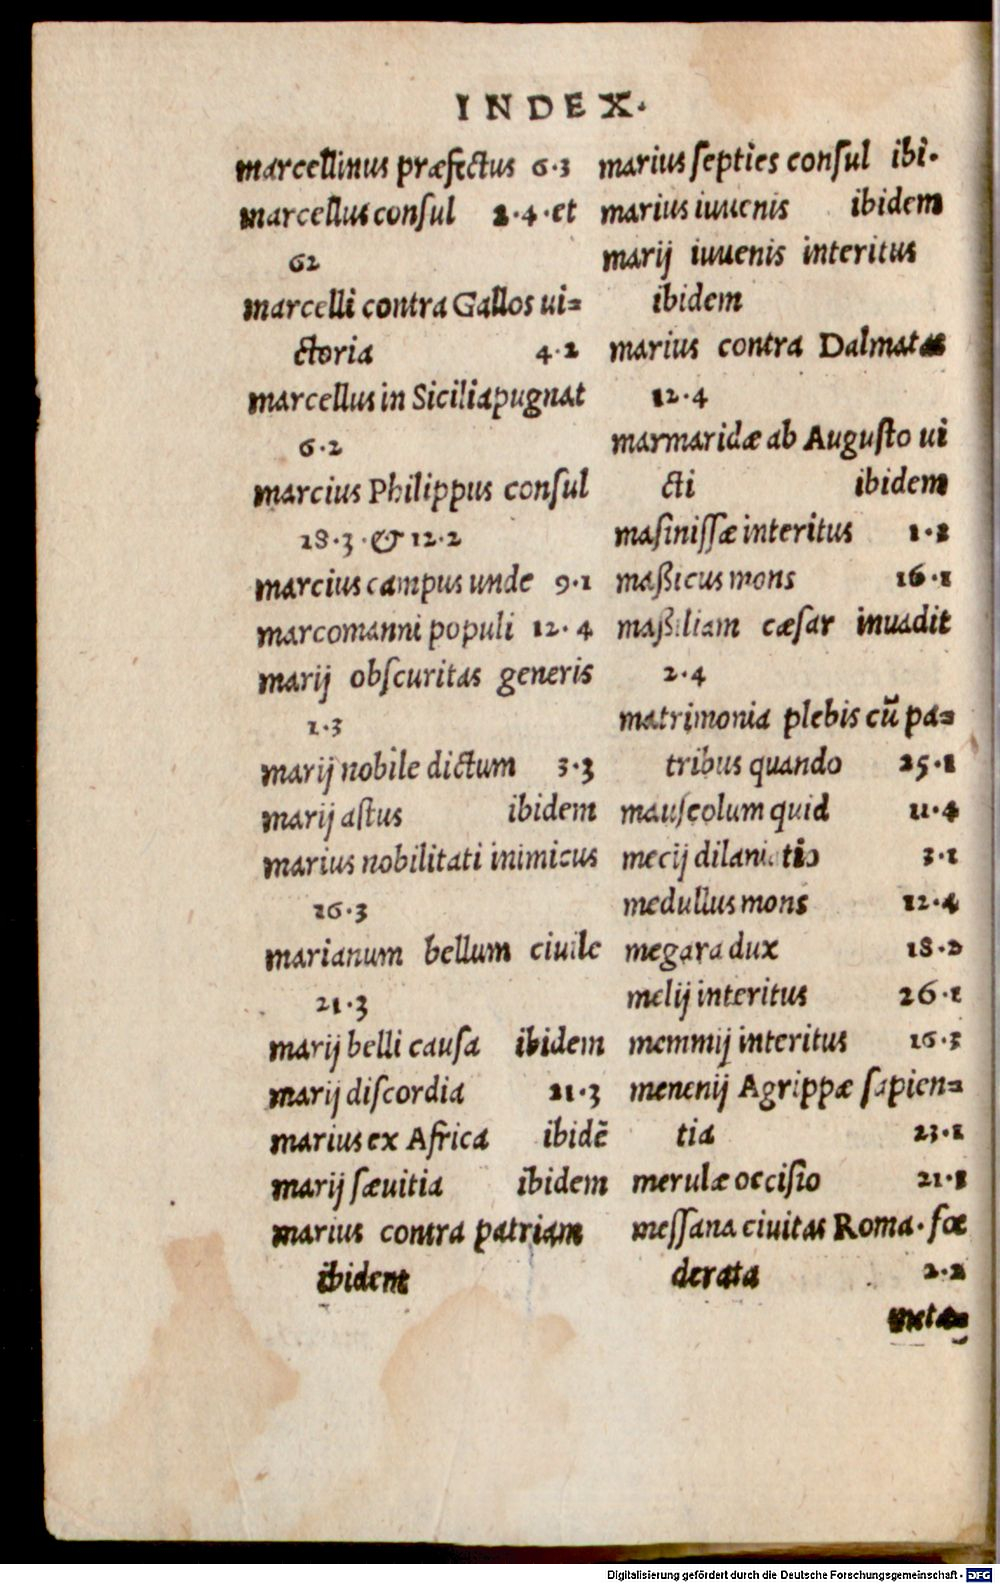 INDEX.
marcellinus præfectus 6·3
marcellus consul 2·4·et
62
marcelli contra Gallos ui=
ctoria 4·2
marcellus in Sicilia pugnat
6·2
marcius Philippus consul
18·3·& 12·2
marcius campus unde 9·1
marcomanni populi 12·4
marij obſcuritas generis
1·3
marij nobile dictum 3·3
marij aſtus ibidem
marius nobilitati inimicus
16·3
marianum bellum ciuile
21·3
marij belli cauſa ibidem
marij diſcordia 21·3
marius ex Africa ibidē
marij ſæuitia ibidem
marius contra patriam
ibidem
marius ſepties conſul ibi·
marius iuuenis ibidem
marij iuuenis interitus
ibidem
marius contra Dalmatas
12·4
marmaridæ ab Auguſto ui
cti ibidem
maſiniſſæ interitus 1·2
maßicus mons 16·1
maßiliam cæſar inuadit
2·4
matrimonia plebis cū pa=
tribus quando 25·1
mauſeolum quid 11·4
mecij dilaniatio 3·1
medullus mons 12·4
megara dux 18·2
melij interitus 26·1
memmij interitus 16·3
menenij Agrippæ ſapien=
tia 23·1
merulæ occiſio 21·3
meſſana ciuitas Roma·fœ
derata 2·2
meta=
Digitalisierung gefördert durch die Deutsche Forschungsgemeinschaft - DFG